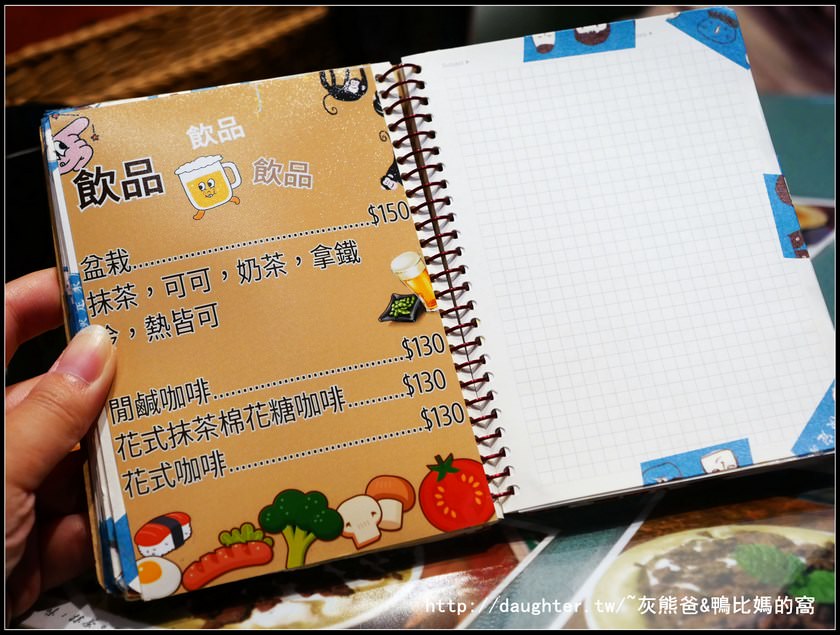 飲品
飲品
飲品
盆栽..............................$150
抹茶，可可，奶茶，拿鐵
冷，熱皆可
閒鹹咖啡..........................$130
花式抹茶棉花糖咖啡........$130
花式咖啡..........................$130
http://daughter.tw/~灰熊爸&鴨比媽的窩